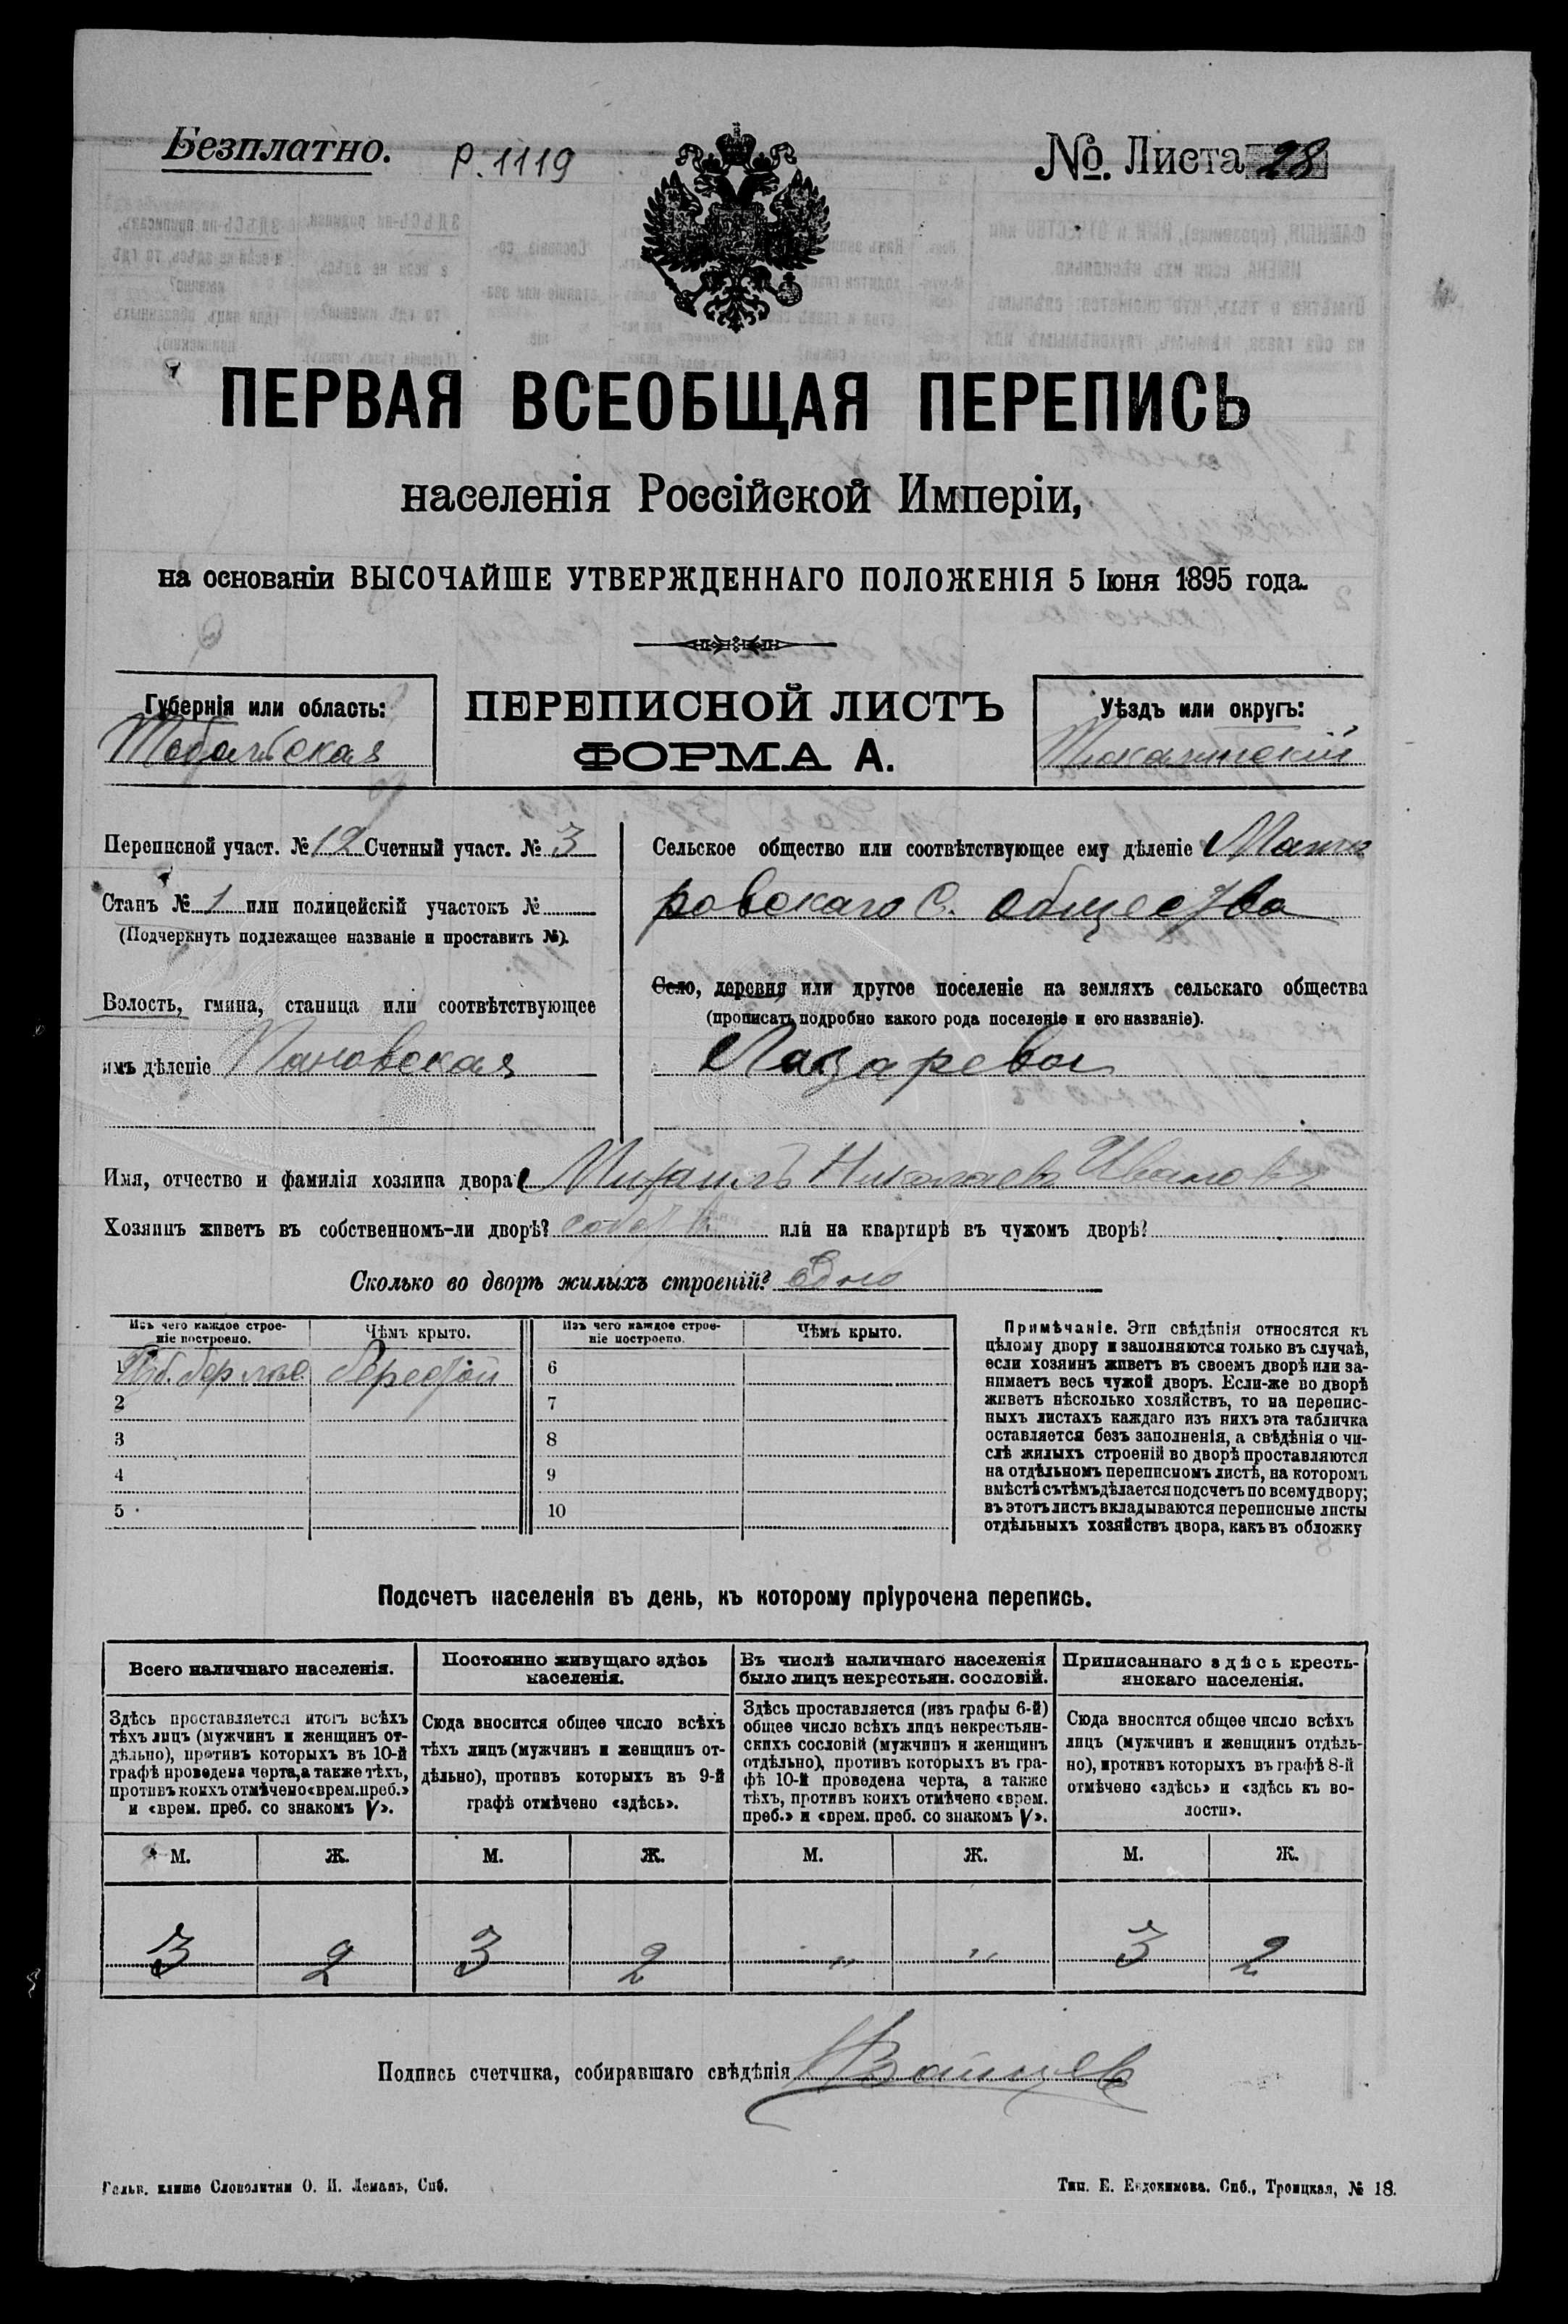 Безплатно.
Р. 1119
№. Листа 28
ПЕРВАЯ ВСЕОБЩАЯ ПЕРЕПИСЬ
населенія Россійской Имперіи,
на основаніи ВЫСОЧАЙШЕ УТВЕРЖДЕННАГО ПОЛОЖЕНІЯ 5 Іюня 1895 года.
Губернія или область:
Тобольская
ПЕРЕПИСНОЙ ЛИСТЪ
ФОРМА А.
Уѣздъ или округъ:
Тюкалинскій
Переписной участ. № 12 Счетный участ. № 3
Станъ № 1 или полицейскій участокъ №
(Подчеркнуть подлежащее названіе и проставить №).
Волость, гмина, станица или соотвѣтствующее
имъ дѣленіе Пановская
Сельское общество или соотвѣтствующее ему дѣленіе
ровскаго С. общества
Село, деревня или другое поселеніе на земляхъ сельскаго общества
(прописать подробно какого рода поселеніе и его названіе).
Лазарева
Имя, отчество и фамилія хозяина двора Михаилъ Николаевъ Ивановъ
Хозяинъ живетъ въ собственномъ-ли дворѣ? или на квартирѣ въ чужомъ дворѣ?
Сколько во дворѣ жилыхъ строеній? Одно
Изъ чего каждое строе-
ніе построено.
Чѣмъ крыто.
Изъ чего каждое строе-
ніе построено.
Чѣмъ крыто.
1 берестой 6
2 7
3 8
4 9
5 10
Примѣчаніе. Эти свѣдѣнія относятся къ
цѣлому двору и заполняются только въ случаѣ,
если хозяинъ живетъ въ своемъ дворѣ или за-
нимаетъ весь чужой дворъ. Если-же во дворѣ
живетъ нѣсколько хозяйствъ, то на перепис-
ныхъ листахъ каждаго изъ нихъ эта табличка
оставляется безъ заполненія, а свѣдѣнія о чи-
слѣ жилыхъ строеній во дворѣ проставляются
на отдѣльномъ переписномъ листѣ, на которомъ
вмѣстѣ съ тѣмъ дѣлается подсчетъ по всему двору;
въ этотъ листъ вкладываются переписные листы
отдѣльныхъ хозяйствъ двора, какъ въ обложку
Подсчетъ населенія въ день, къ которому пріурочена перепись.
Всего наличнаго населенія.
Здѣсь проставляется итогъ всѣхъ
тѣхъ лицъ (мужчинъ и женщинъ от-
дѣльно), противъ которыхъ въ 10-й
графѣ проведена черта, а также тѣхъ,
противъ коихъ отмѣчено «врем. преб.»
и «врем. преб. со знакомъ V».
Постоянно живущаго здѣсь
населенія.
Сюда вносится общее число всѣхъ
тѣхъ лицъ (мужчинъ и женщинъ от-
дѣльно), противъ которыхъ въ 9-й
графѣ отмѣчено «здѣсь».
Въ числѣ наличнаго населенія
было лицъ некрестьян. сословій.
Здѣсь проставляется (изъ графы 6-й)
общее число всѣхъ лицъ некрестьян-
скихъ сословій (мужчинъ и женщинъ
отдѣльно), противъ которыхъ въ гра-
фѣ 10-й проведена черта, а также
тѣхъ, противъ коихъ отмѣчено «врем.
преб.» и «врем. преб. со знакомъ V».
Приписаннаго здѣсь кресть-
янскаго населенія.
Сюда вносится общее число всѣхъ
лицъ (мужчинъ и женщинъ отдѣль-
но), противъ которыхъ въ графѣ 8-й
отмѣчено «здѣсь» и «здѣсь къ во-
лости».
М. Ж. М. Ж. М. Ж. М. Ж.
3 2 3 2 " " 3 2
Подпись счетчика, собиравшаго свѣдѣнія
Гальв. клише Словолитни О. И. Леманъ, Спб.
Тип. Е. Евдокимова. Спб., Троицкая, № 18.